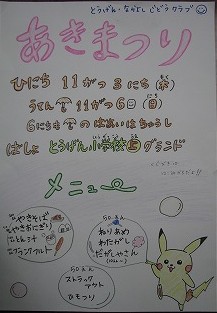 とうげん・ながよし じどうクラブ
あきまつり
ひにち 11がつ3にち(木)
うてん 11がつ6日(日)
6にちも の ばあいは ちゅうし
ばしょ とうげん小学校 グランド
メニュー
やきそば
やきおにぎり
とん汁
フランクフルト
50えん
ねりあめ
わたがし
だがしやさん
50えん
ストラック
アウト
ひもつり